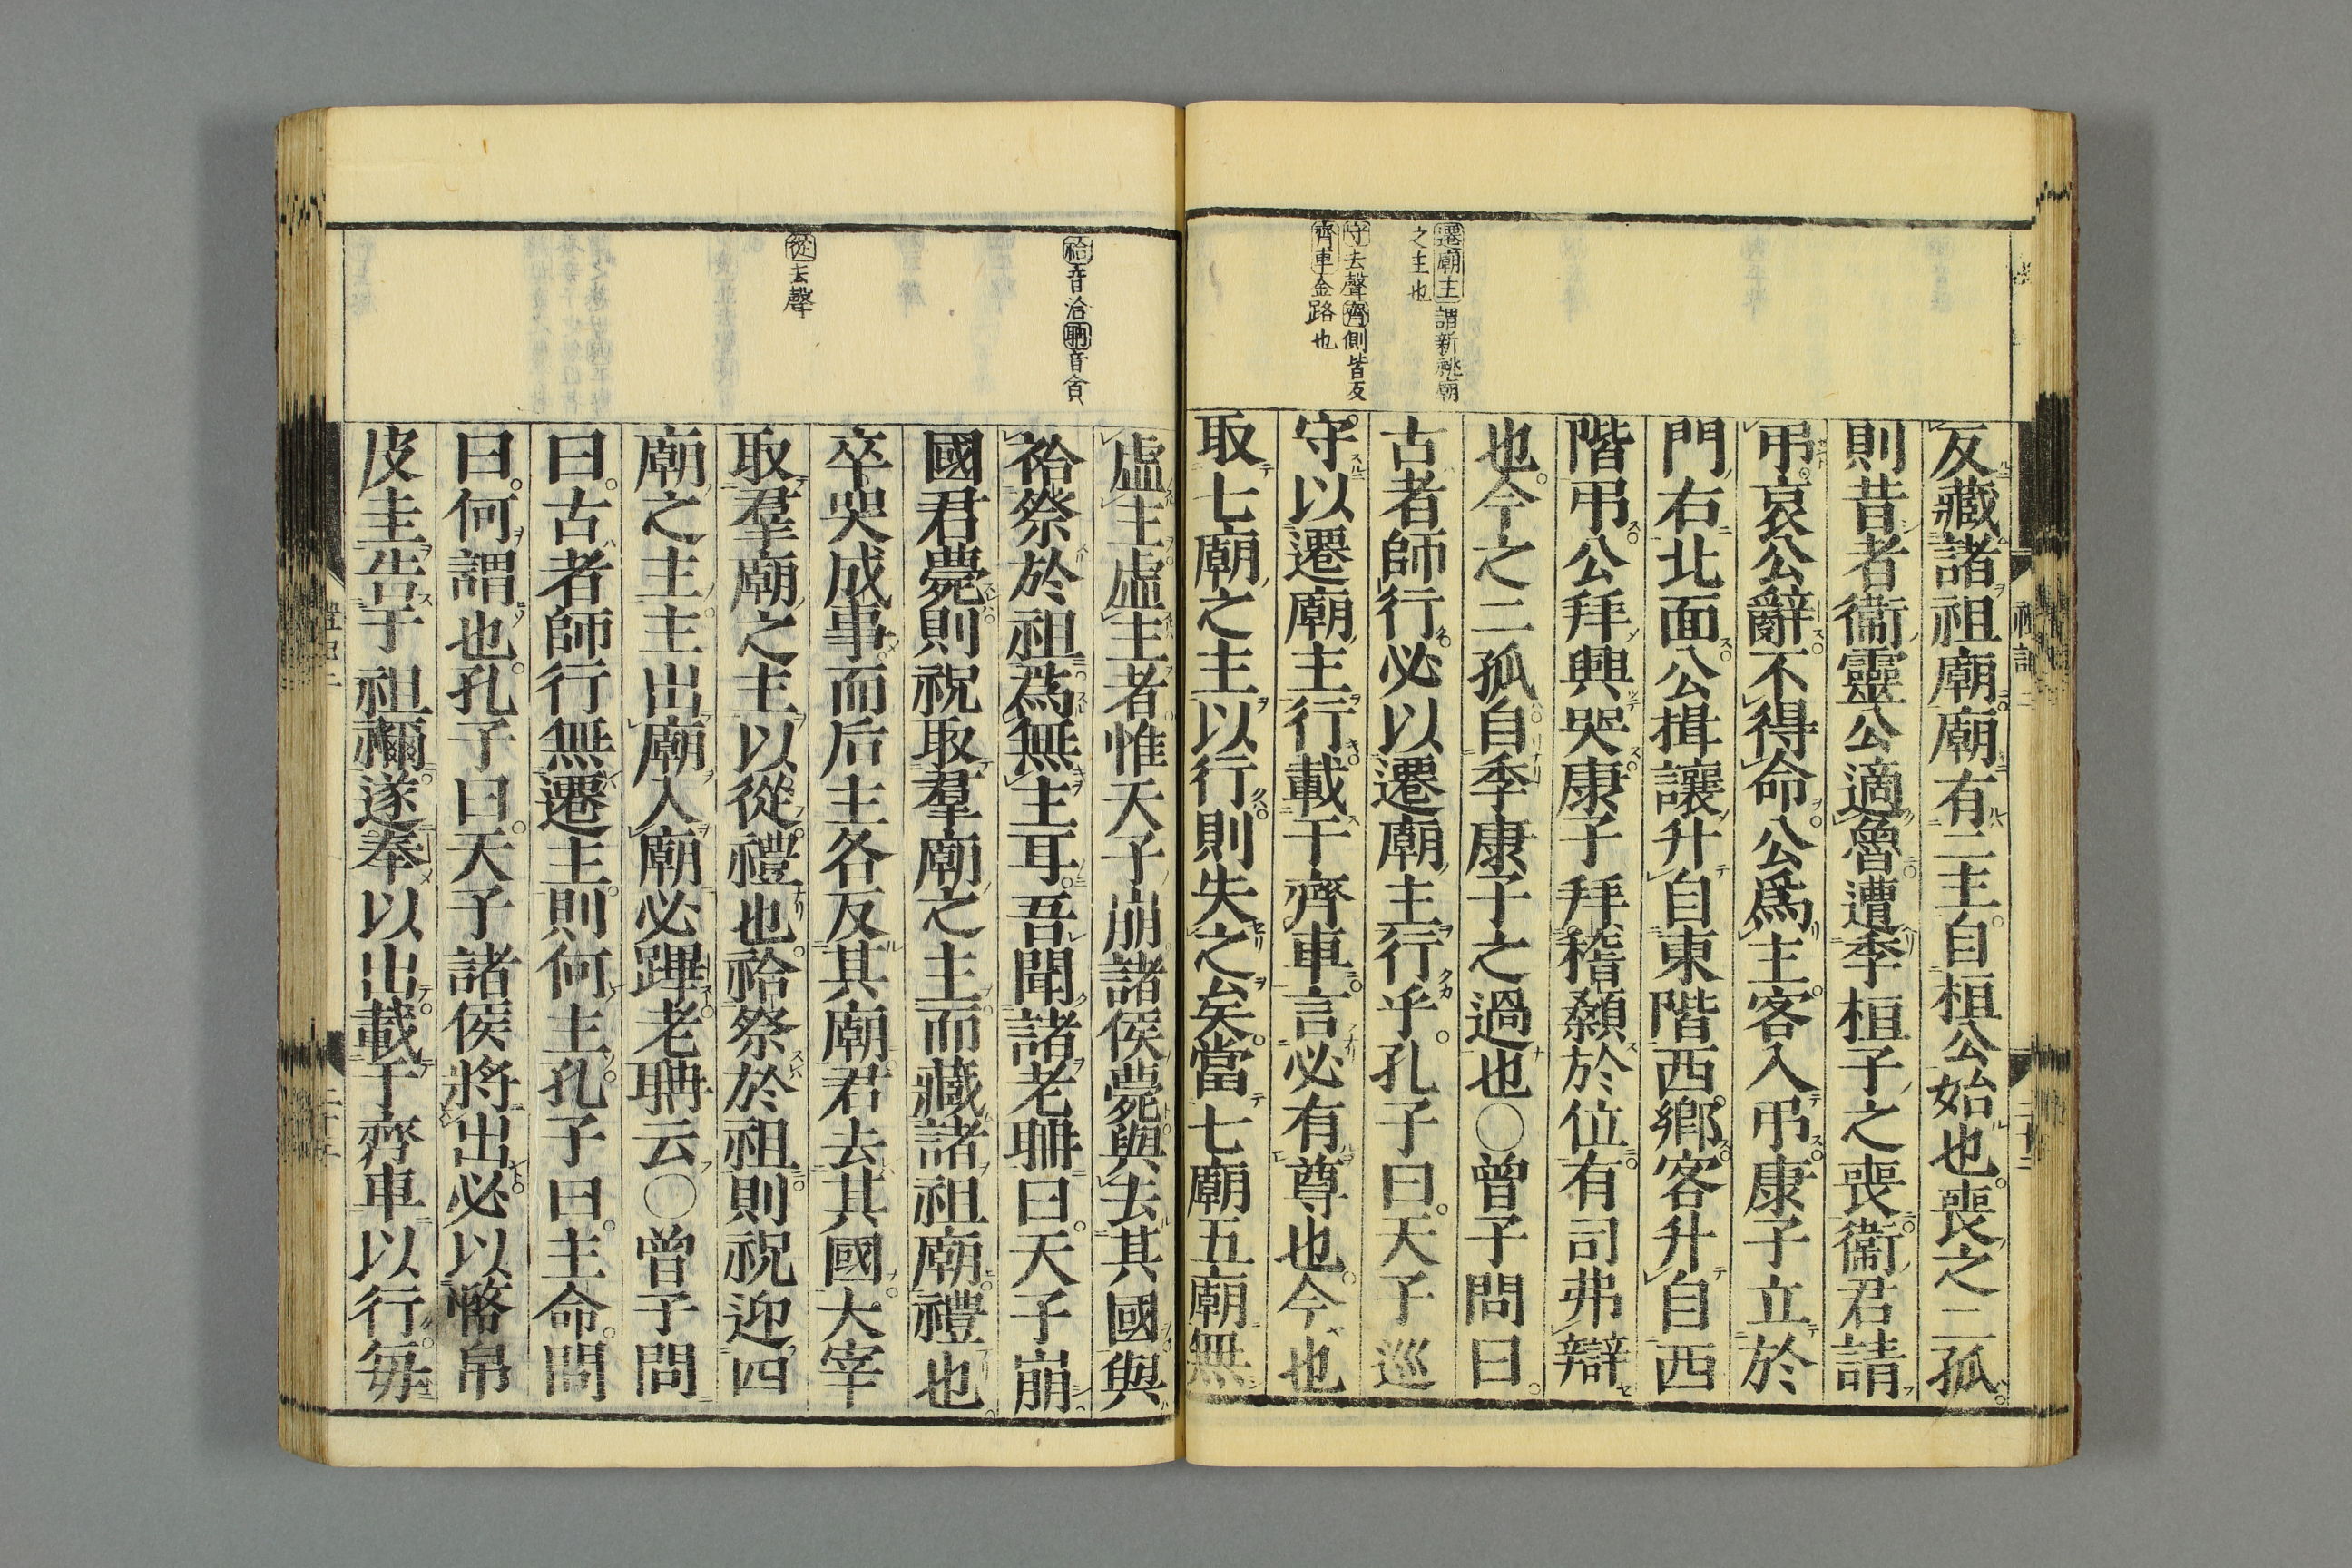 遷廟主謂新祧廟
之主也
守去聲齊側皆反
齊車金路也
反藏諸祖廟廟有二主自桓公始也喪之二孤
則昔者衞靈公適魯遭季桓子之喪衞君請
弔哀公辭不得命公爲主客入弔康子立於
門右北面公揖讓升自東階西鄉客升自西
階弔公拜興哭康子拜稽顙於位有司弗辯
也今之二孤自季康子之過也○曾子問曰
古者師行必以遷廟主行乎孔子曰天子巡
守以遷廟主行載于齊車言必有尊也今也
取七廟之主以行則失之矣當七廟五廟無
祫音洽聃音貪
從去聲
虛主虛主者惟天子崩諸侯薨與去其國與
祫祭於祖爲無主耳吾聞諸老聃曰天子崩
國君薨則祝取羣廟之主而藏諸祖廟禮也
卒哭成事而后主各反其廟君去其國大宰
取羣廟之主以從禮也祫祭於祖則祝迎四
廟之主主出廟入廟必蹕老聃云○曾子問
曰古者師行無遷主則何主孔子曰主命問
曰何謂也孔子曰天子諸侯將出必以幣帛
皮圭告于祖禰遂奉以出載于齊車以行每